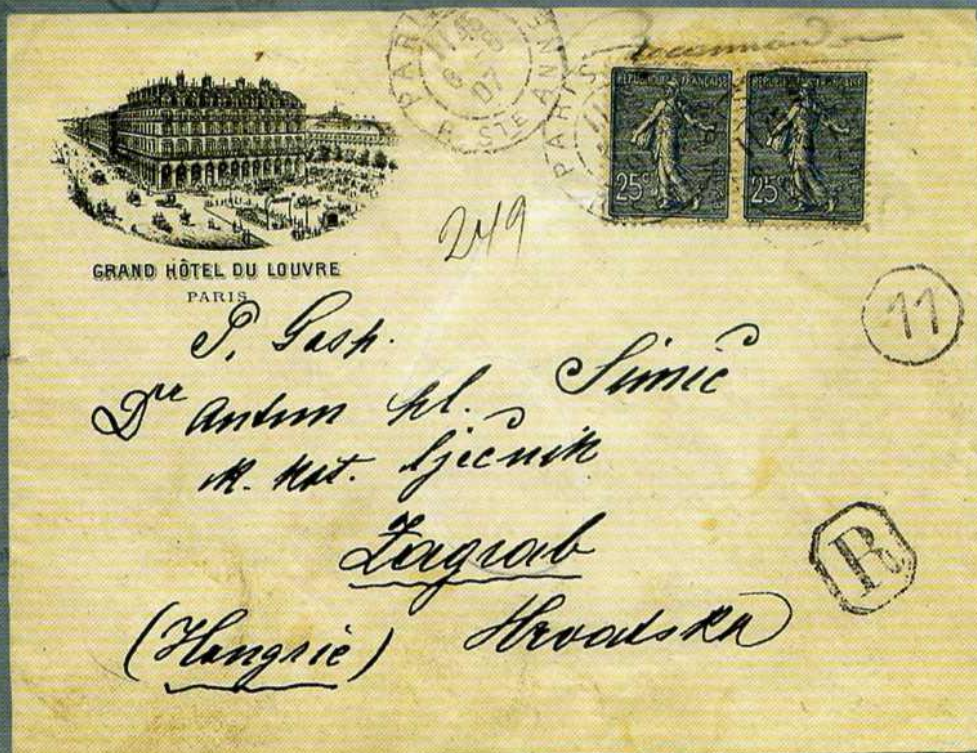 Recommandée
PARIS
07
STE ANNE
PARIS
REPUBLIQUE FRANÇAISE
25c
REPUBLIQUE FRANÇAISE
25c
249
GRAND HÔTEL DU LOUVRE
PARIS
11
P. Gosp.
Dre Antun pl. Šimić
k. kot. liječnik
R
Zagrab
(Hongrie) Hrvatska